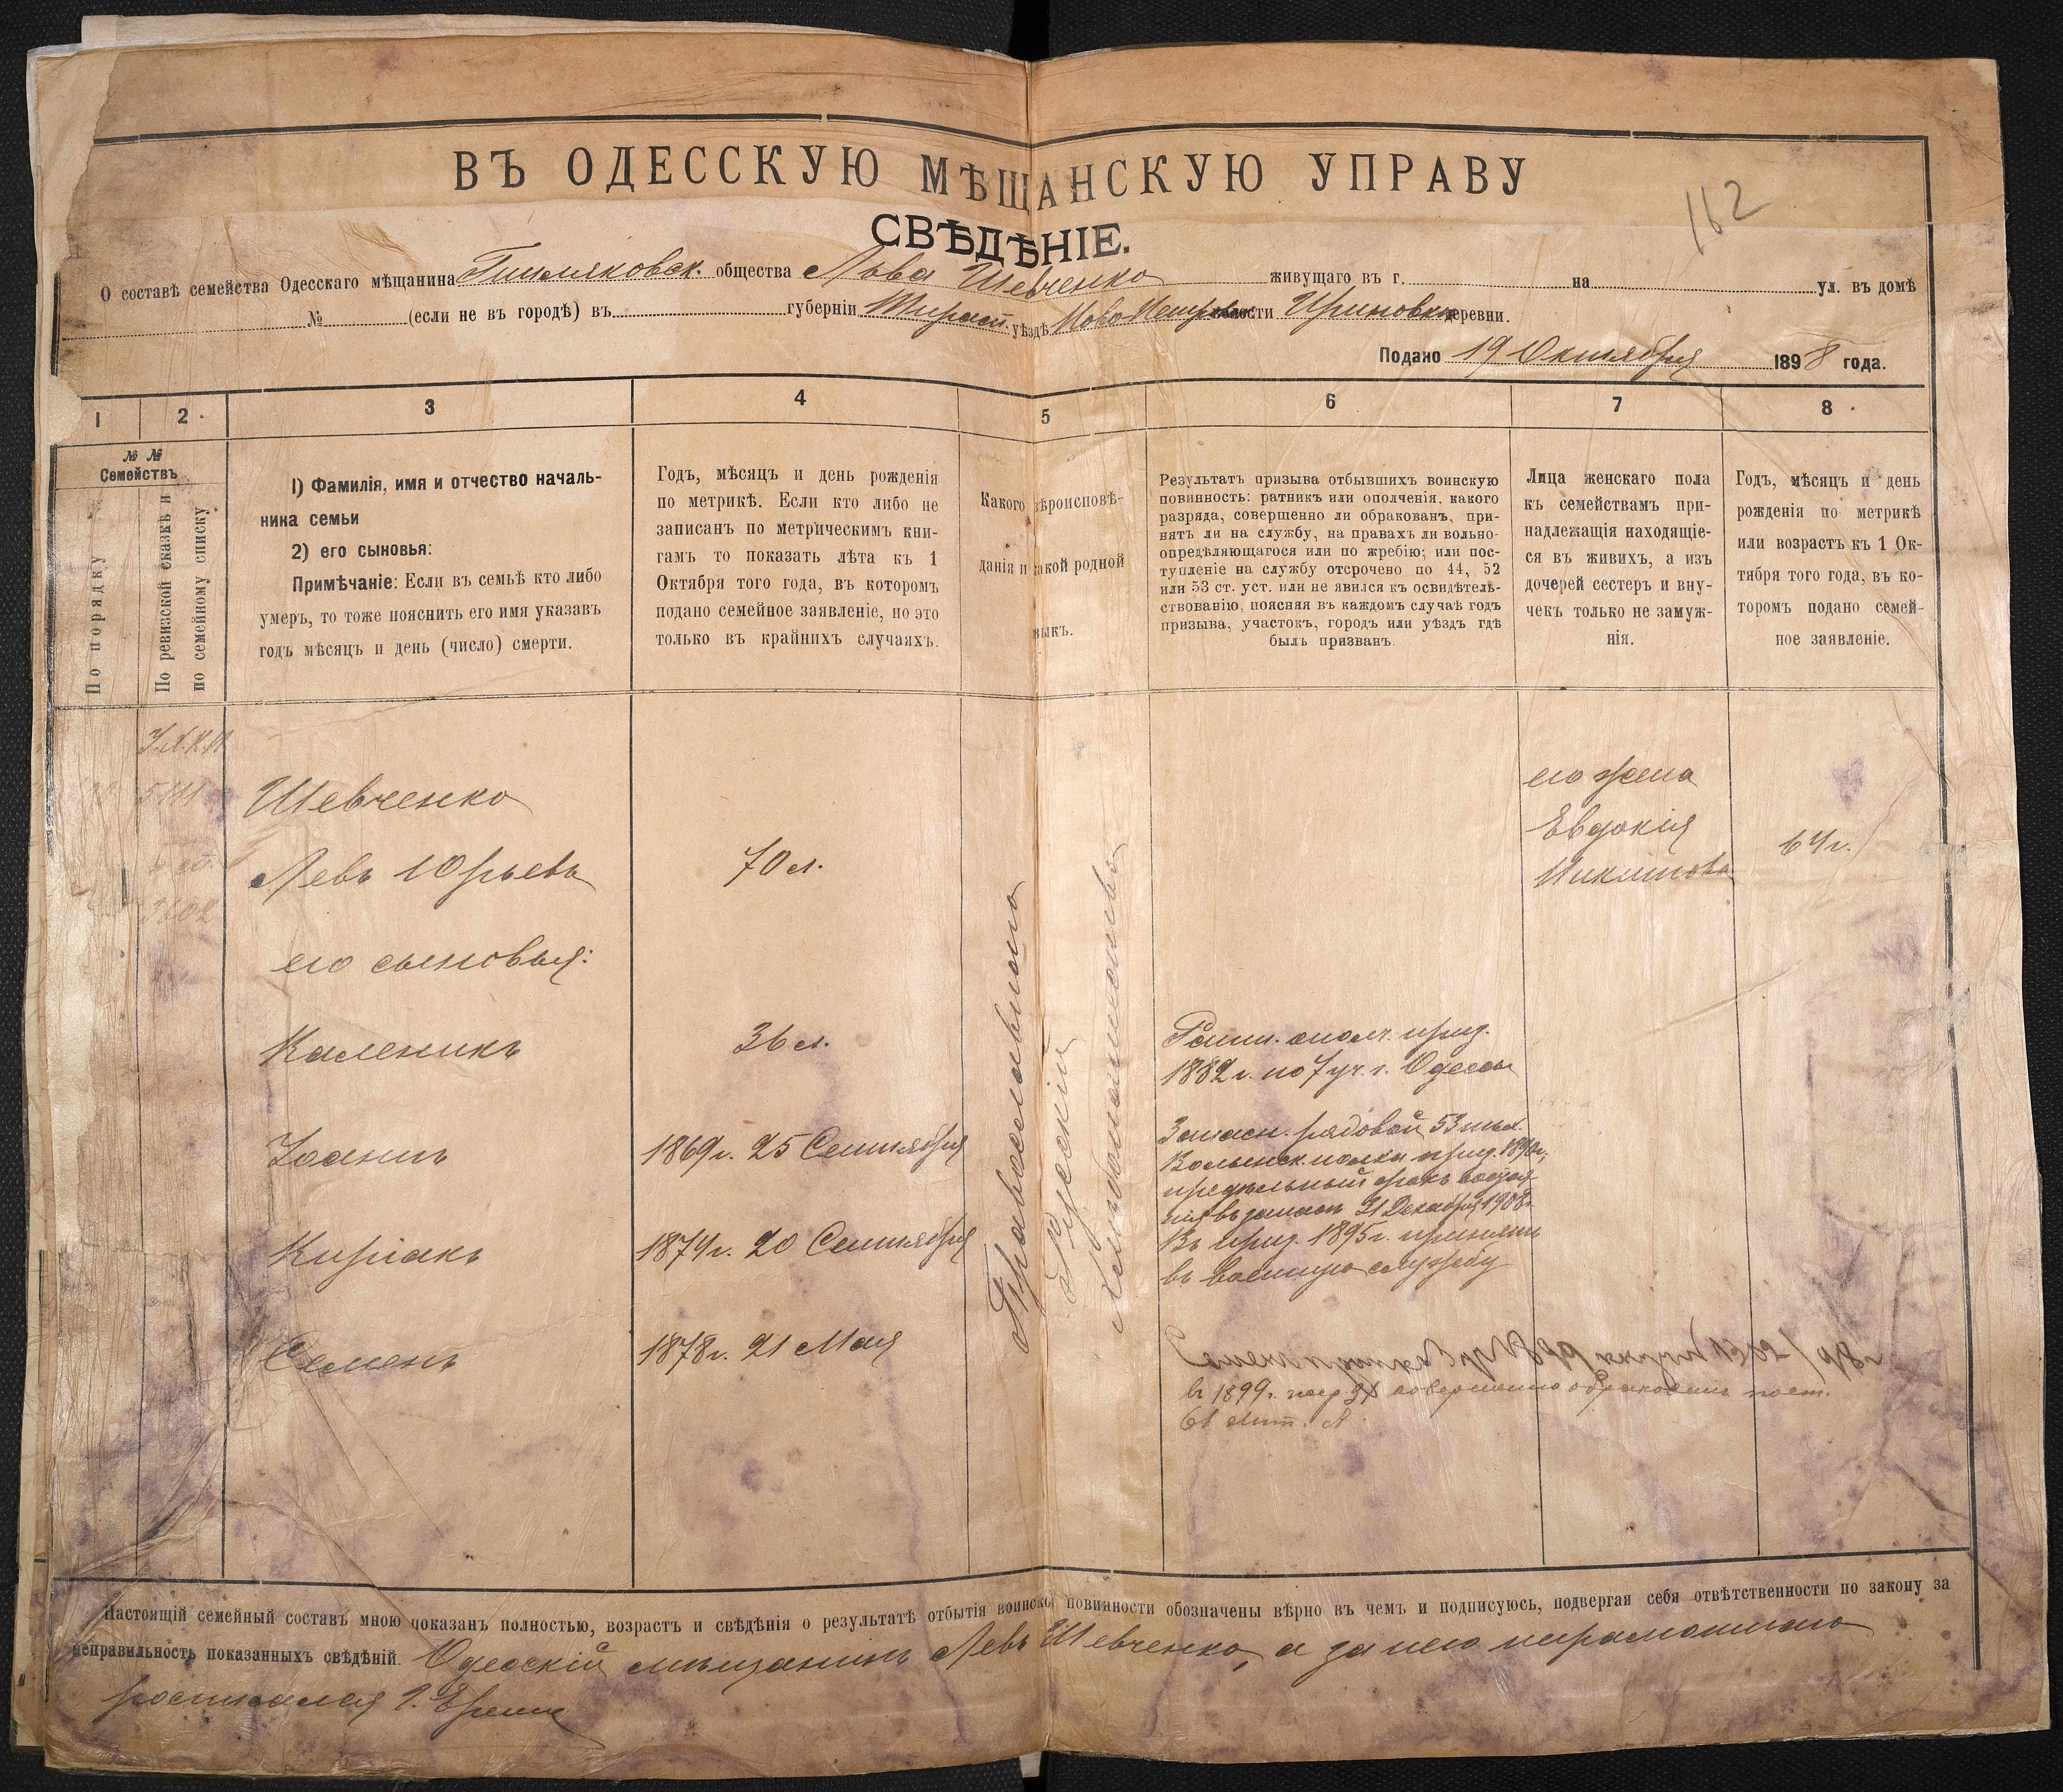 ВЪ ОДЕССКУЮ МѢЩАНСКУЮ УПРАВУ
162
СВѢДѢНІЕ.
О составѣ семейства Одесскаго мѣщанина общества Льва Шевченко живущаго въ г. на ул. въ домѣ
№ (если не въ городѣ) въ губерніи Тирасп. уѣздѣ волости деревни.
Подано 19 Октября 1898 года.
1 2 3 4 5 6 7 8
№ №
Семействъ
По порядку
По ревизской сказкѣ и
по семейному списку
1) Фамилія, имя и отчество началь-
ника семьи
2) его сыновья:
Примѣчаніе: Если въ семьѣ кто либо
умеръ, то тоже пояснить его имя указавъ
годъ мѣсяцъ и день (число) смерти.
Годъ, мѣсяцъ и день рожденія
по метрикѣ. Если кто либо не
записанъ по метрическимъ кни-
гамъ то показать лѣта къ 1
Октября того года, въ которомъ
подано семейное заявленіе, но это
только въ крайнихъ случаяхъ.
Какого вѣроисповѣ-
данія и какой родной
зыкъ.
Результатъ призыва отбывшихъ воинскую
повинность: ратникъ или ополченія, какого
разряда, совершенно ли обракованъ, при-
нятъ ли на службу, на правахъ ли вольно-
опредѣляющагося или по жребію; или пос-
тупленіе на службу отсрочено по 44, 52
или 53 ст. уст. или не явился къ освидѣтель-
ствованію, поясняя въ каждомъ случаѣ годъ
призыва, участокъ, городъ или уѣздъ гдѣ
былъ призванъ.
Лица женскаго пола
къ семействамъ при-
надлежащія находящіе-
ся въ живихъ, а изъ
дочерей сестеръ и вну-
чекъ только не замуж-
нія.
Годъ, мѣсяцъ и день
рожденія по метрикѣ
или возрастъ къ 1 Ок-
тября того года, въ ко-
торомъ подано семей-
ное заявленіе.
Шевченко
Левъ Юрьевъ 70 л.
его жена
Евдокія
Никитова 64 г.
его сыновья:
Каленикъ 36 л.
Ратн. ополч. приз.
1882 г. по 7 уч. г. Одессы
Іоаннъ 1869 г. 25 Сентября
Запасн. рядовой 53 пѣх.
Волынск. полка приз. 1890 г.,
предѣльный срокъ состоя-
нія въ запасѣ 31 Декабря 1908 г.
Киріакъ 1874 г. 20 Сентября
Въ приз. 1895 г. принятъ
въ военную службу
Семенъ 1878 г. 21 Мая
въ 1899 г. совершенно обракованъ
лит. А
Православнаго
Русскій
Настоящій семейный составъ мною показанъ полностью, возрастъ и свѣдѣнія о результатѣ отбытія воинской повинности обозначены вѣрно въ чемъ и подписуюсь, подвергая себя отвѣтственности по закону за
неправильность показанныхъ свѣдѣній. Одесскій мѣщанинъ Левъ Шевченко, а за него неграмотнаго
росписался